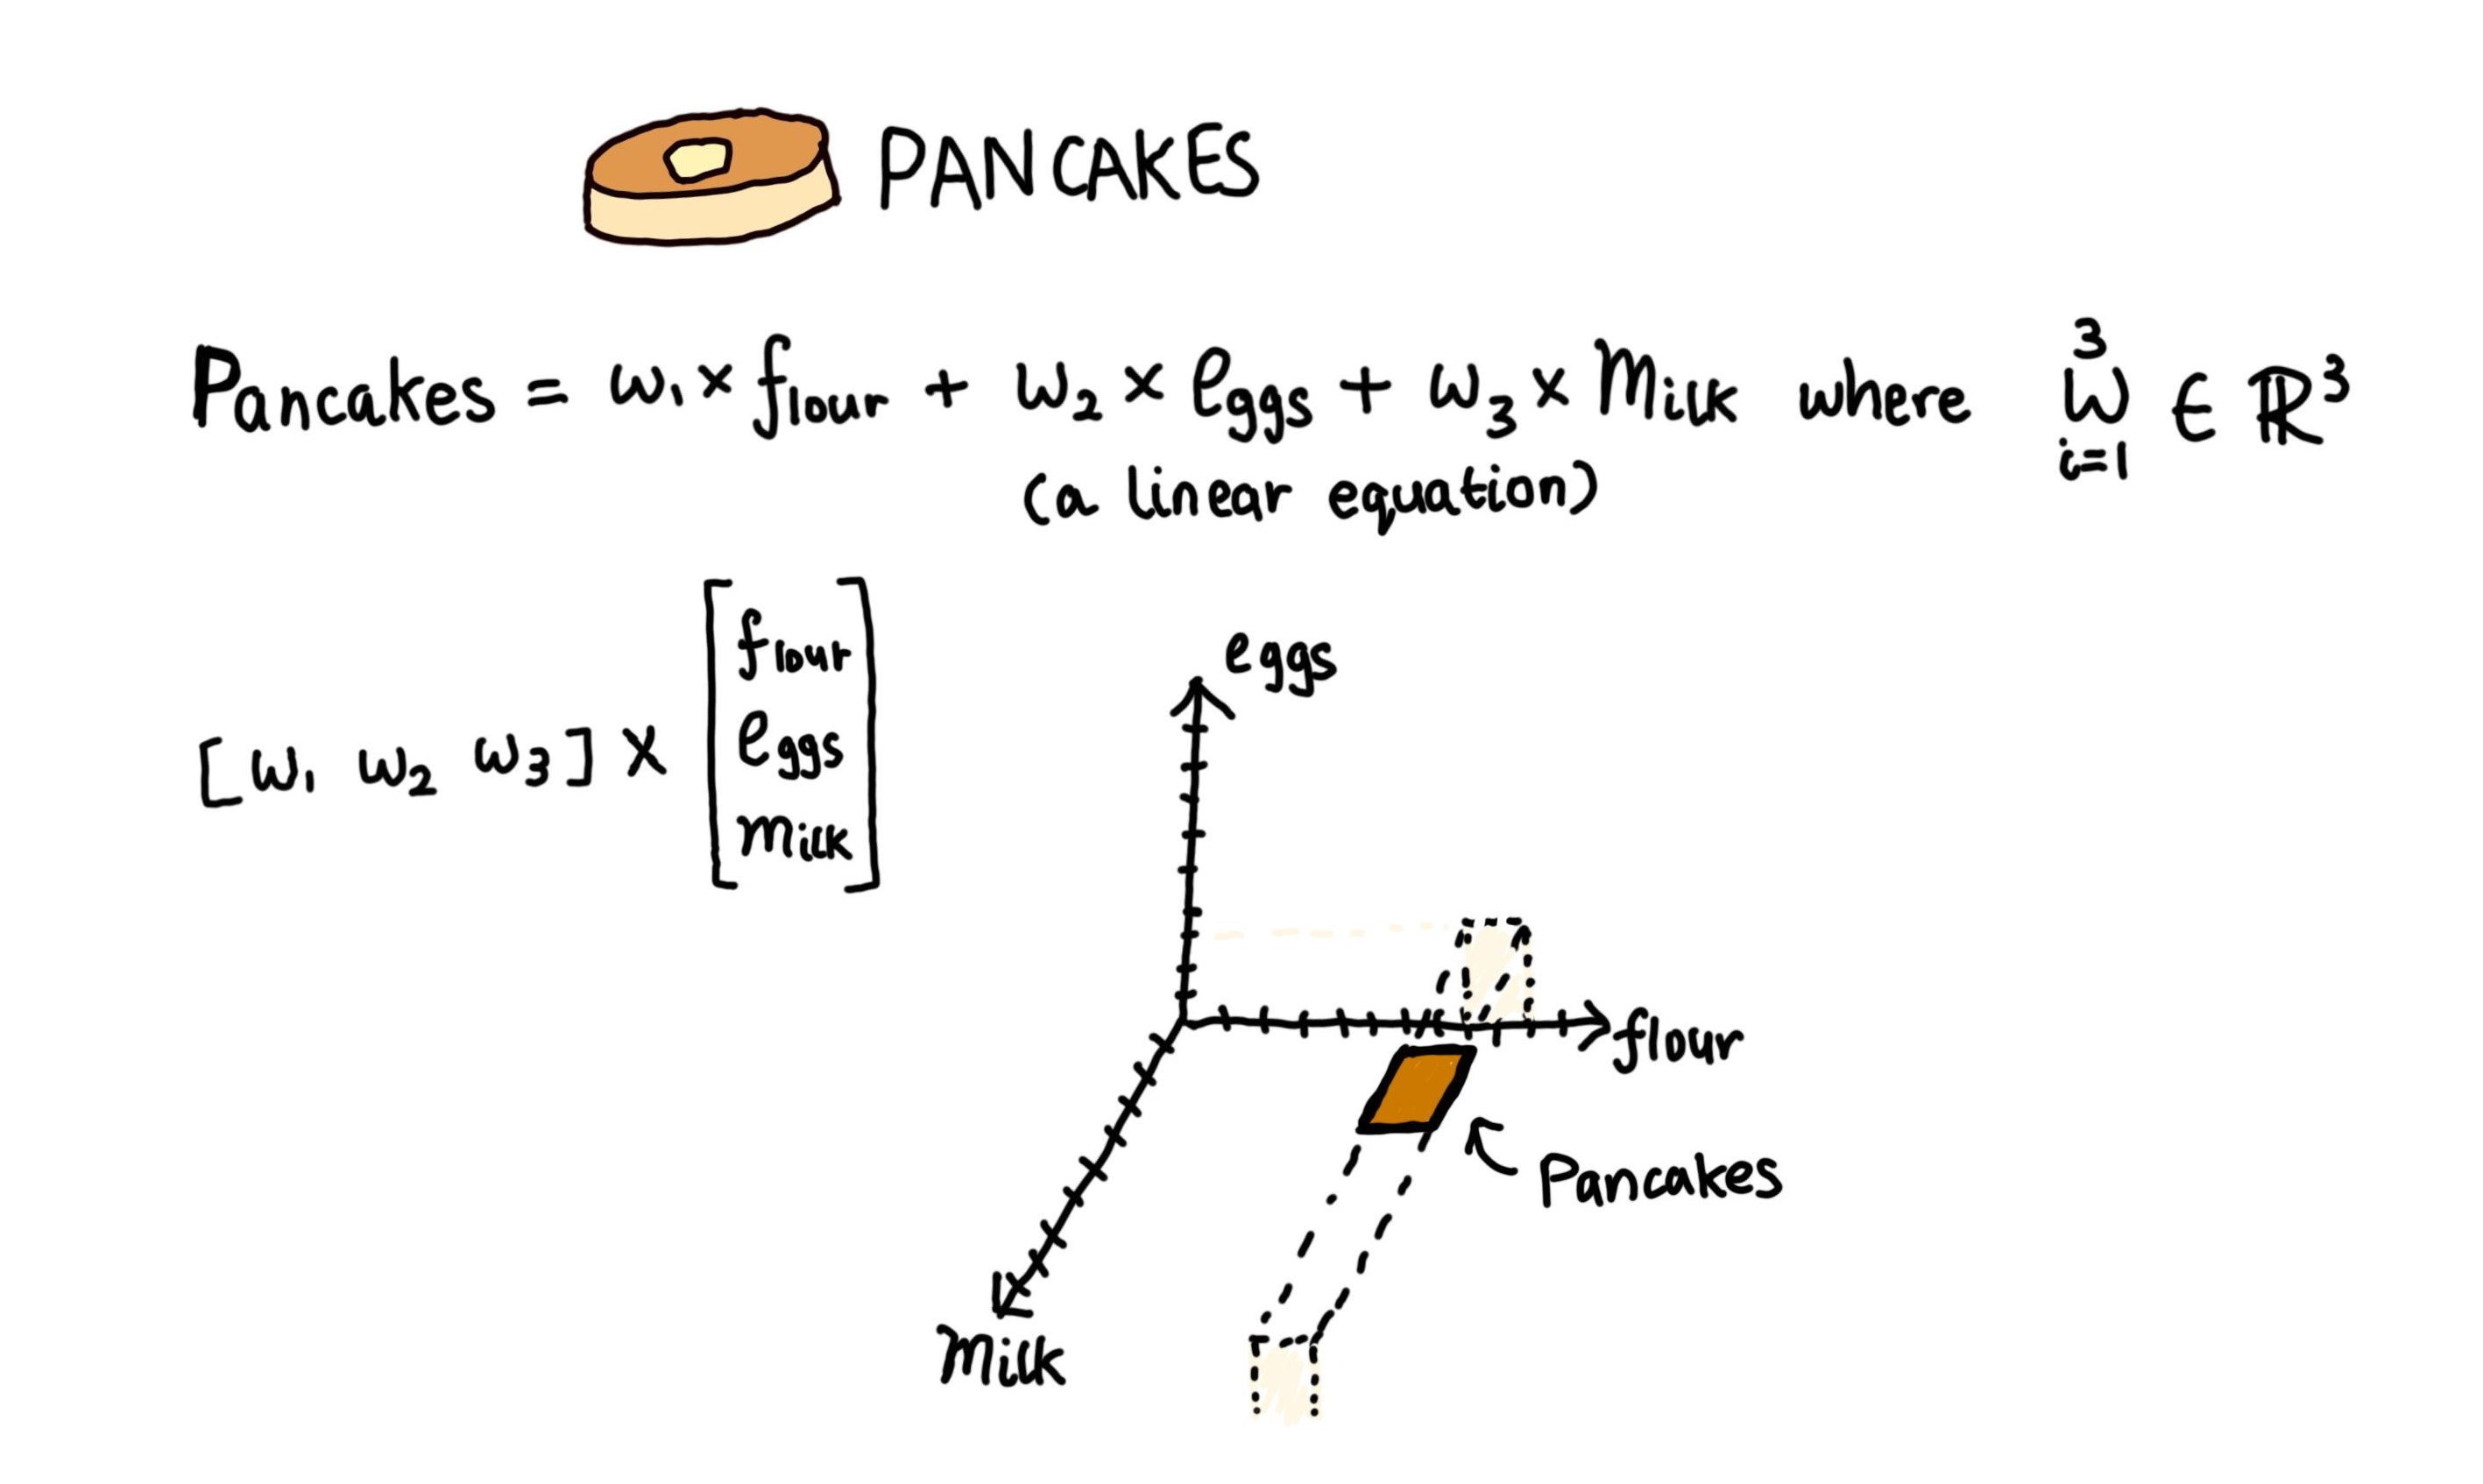 PANCAKES
Pancakes = w₁ × flour + w₂ × eggs + w₃ × Milk where 3 W i=1 ∈ ℝ³
(a linear equation)
[w₁ w₂ w₃] × [flour
eggs
milk]
eggs
flour
Pancakes
Milk